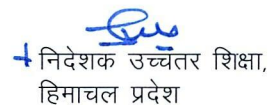 निदेशक उच्चतर शिक्षा,
हिमाचल प्रदेश